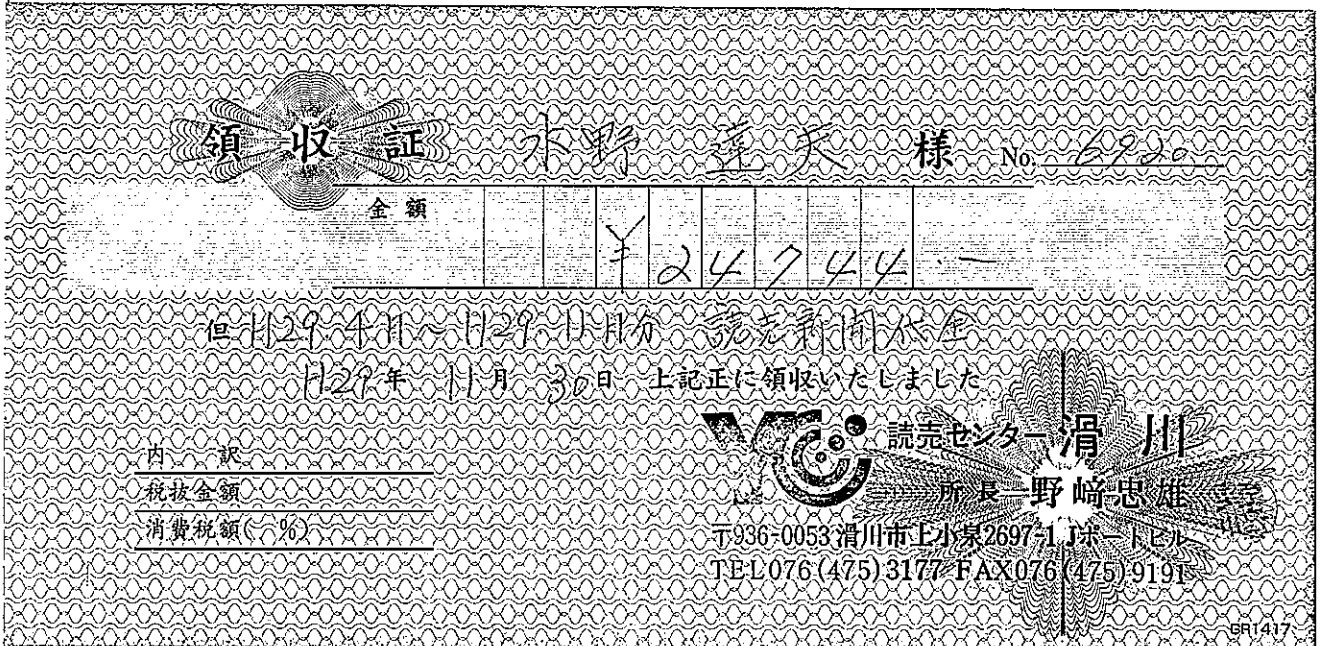 領収証 水野 達夫 様 No. 6920
金額 ¥24744.-
但 H29.4月～H29.11月分 読売新聞代金
H29年 11月 30日 上記正に領収いたしました
内訳
税抜金額
消費税額( %)
YC 読売センター 滑川
所長 野﨑忠雄
〒936-0053 滑川市上小泉2697-1 Jポートビル
TEL076(475)3177 FAX076(475)9191
GR1417